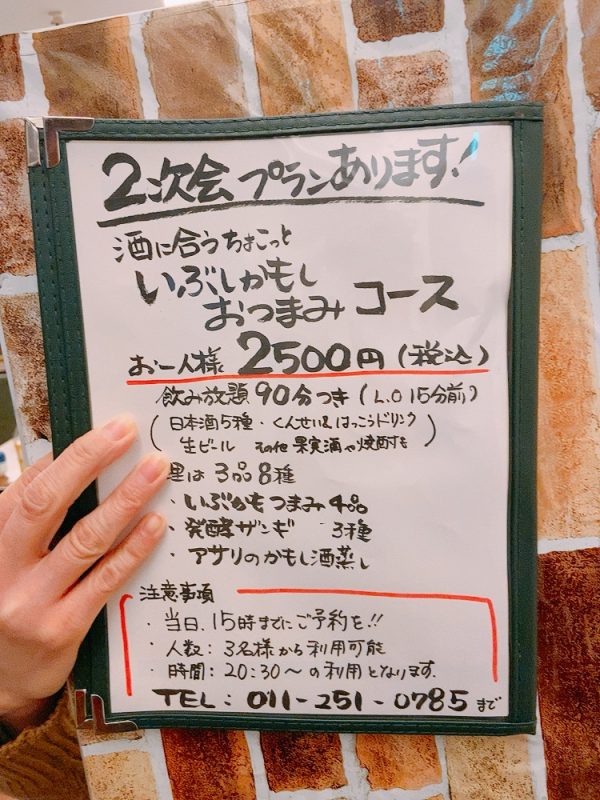 2次会プランあります!
酒に合うちょこっと
いぶしかもし
おつまみ コース
お一人様 2500円(税込)
飲み放題 90分つき(L.O 15分前)
(日本酒5種・くんせい&はっこうドリンク
生ビール その他 果実酒や焼酎も)
理は 3品8種
・いぶかもつまみ4品
・発酵ザンギ 3種
・アサリのかもし酒蒸し
注意事項
・当日、15時までにご予約を!!
・人数:3名様から利用可能
・時間:20:30〜の利用となります。
TEL:011-251-0785まで